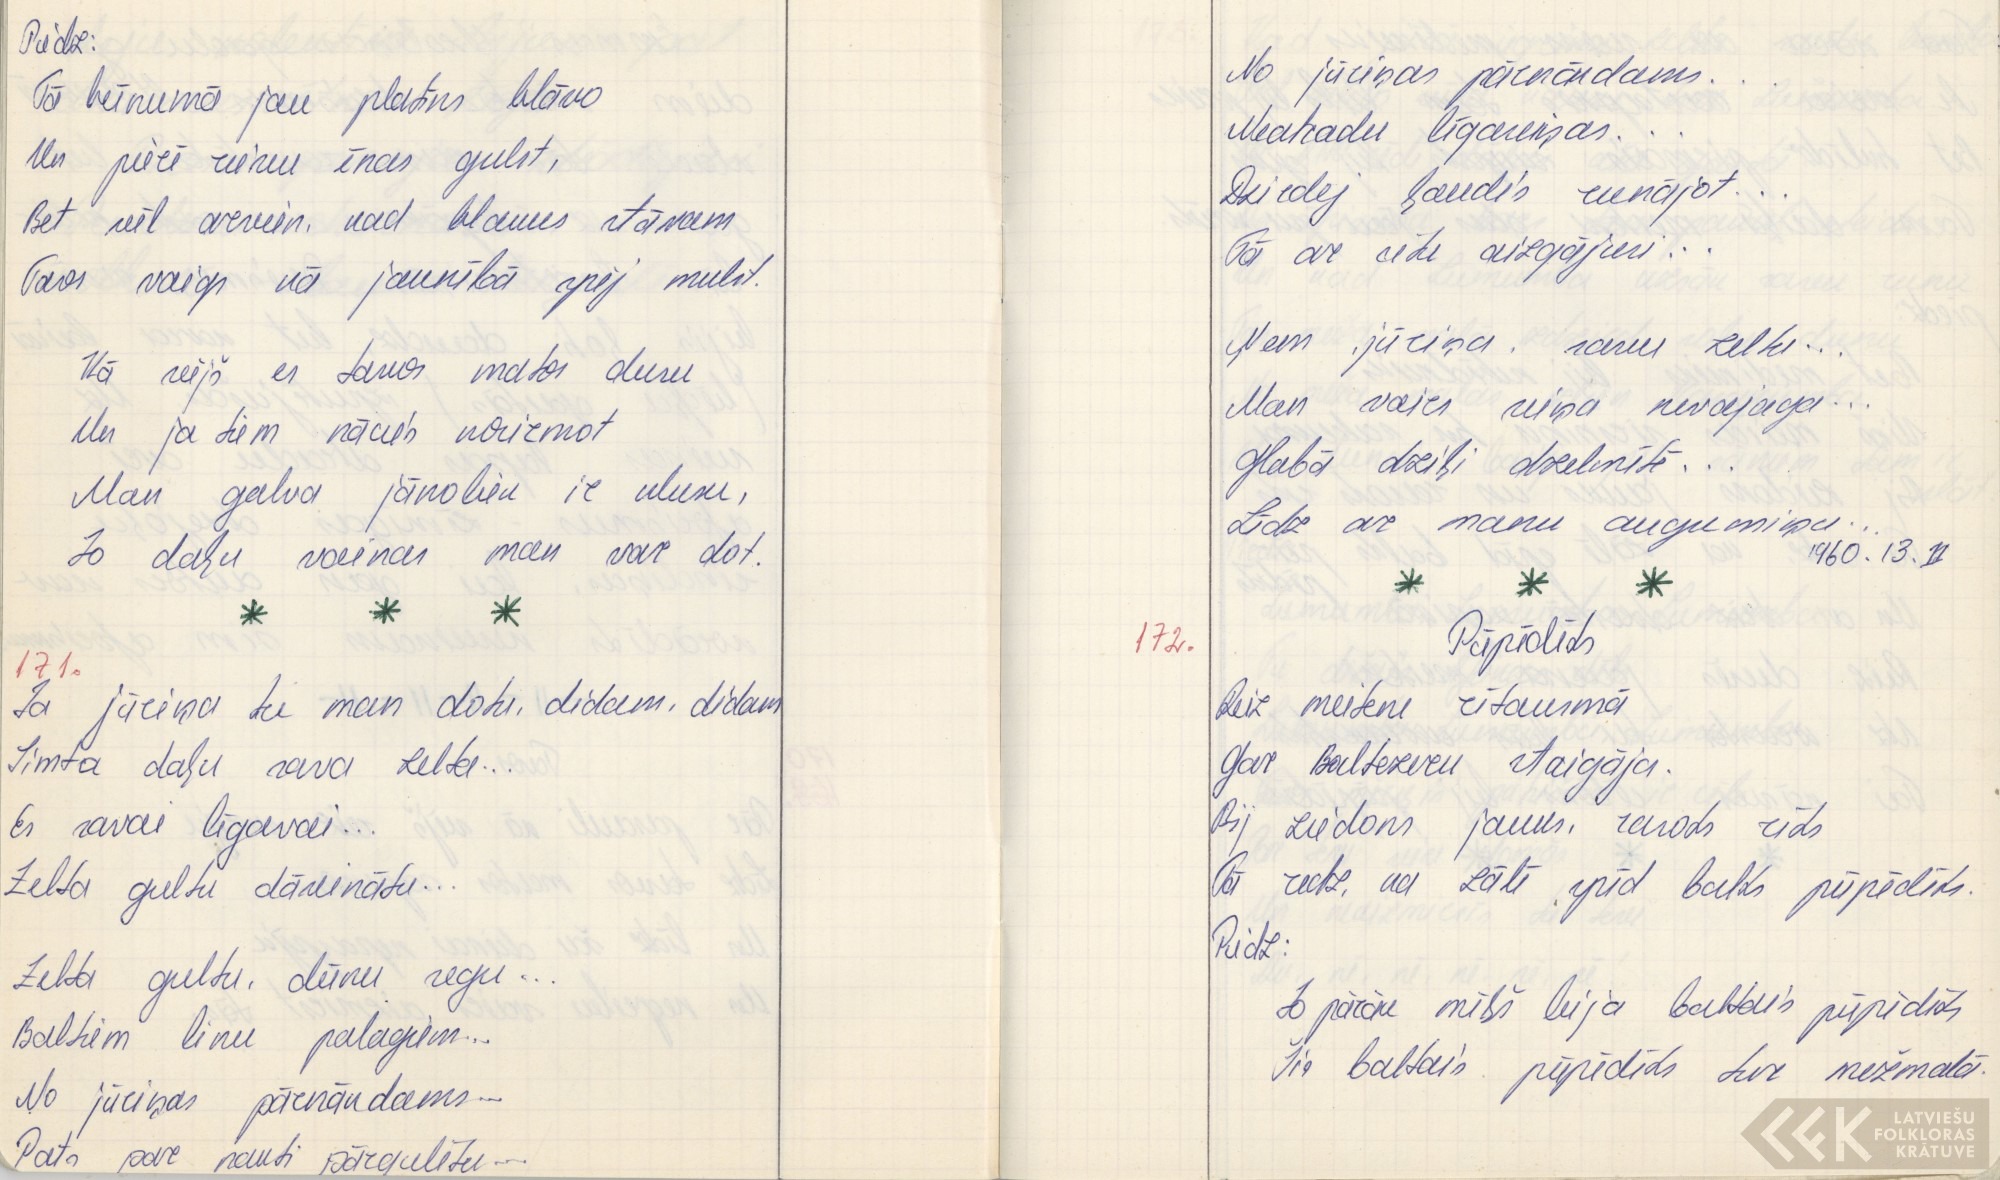 Piedz:
Tā kūnumā jau plaśus klāvo
Un pierē rievu ēnas gulst,
Bet vēl arvien, kad blakus stāvam
Tavs vaigs kā jaunībā spēj mulst.
Kā vējš es tavos matos dusu
Un ja tiem nācies nosirmot
Man galva jānoliec ir klusu,
Jo daļu vainas man var dot.
* * *
171.
Ja jūriņa tu man dotu, didam, didam
Simta daļu sava zelta...
Es savai līgavai...
Zelta gultu dāvinātu...
Zelta gultu, dūnu segu...
Baltiem linu palagiem...
No jūriņas pārnākdams...
Pats par nakti pārgulētu...
No jūriņas pārnākdams...
Neatradu līgaviņas...
Dzirdēj ļaudis runājot...
Tā ar citu aizgājusi...
Ņem jūriņa, savu zeltu...
Man vairs viņa nevajaga...
Glabā dziļi dzelmītē...
Līdz ar manu augumiņu...
1960. 13. II
* * *
172.
Pūpēdīts
Reiz meitene rītausmā
Gar Baltezeru staigāja.
Bij ziedons jauns, rasots rīts
Tā redz, ka zālē spīd balts pūpēdīts.
Piedz:
Jo pārāk mīļš bija baltais pūpēdīts
Šis baltais pūpēdīts tur mežmalā.
LATVIEŠU
FOLKLORAS
KRĀTUVE